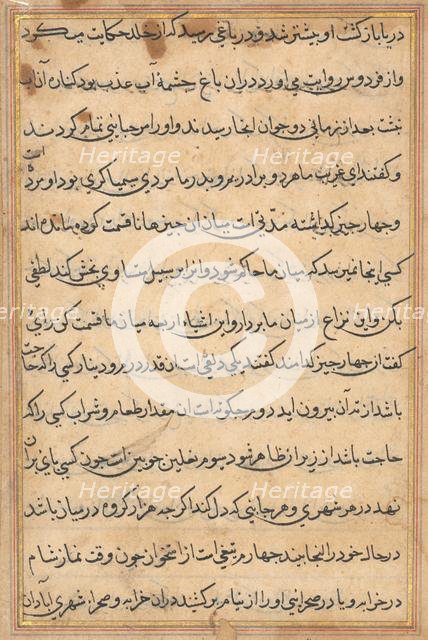 دریا باز کشت او بیشتر شد و در باغی رسید که از خلد حکایت میکرد
و از فردوس روایت می اورد در ان باغ چشمهٔ آب عذب بود کناره آب
نشست بعد از زمانی دو جوان انجا رسیدند و اورا مرحبایی تمام کردند
و گفتند ای غریب ما هر دو برادریم و پدر ما مردی سیمیاگری بود او مرده است
و چهار چیز گذاشته مدتی است میان ان چیزها نا قسمت کرده مانده اند
کسی انجا نمیرسد که میان ما حاکم شود و انرا بر سبیل متساوی بخش کند لطفی
بکن و این نزاع از میان ما بردار و این اشیاء اربعه میان ما قسمت کن رای
گفت از چهار چیز کدامند گفتند یکی دلقی است ان قدر درم و دینار کسی را که حاجت
باشد از ته آن بیرون اید دوم کجکول است ان مقدار طعام و شراب کسی را که
حاجت باشد از زیر ان ظاهر شود سوم نعلین چوبین است چون کسی پای بر ان
نهد در هر شهری و هر جایی که دل کند اگرچه هزار کروه در میان باشد
در حال خود را انجا بیند چهارم تیغی است از استخوان چون وقت نماز شام
در خرابه و یا در صحرائی او را از نیام بر کشند در ان خرابه و صحرا شهری آبادان
Heritage